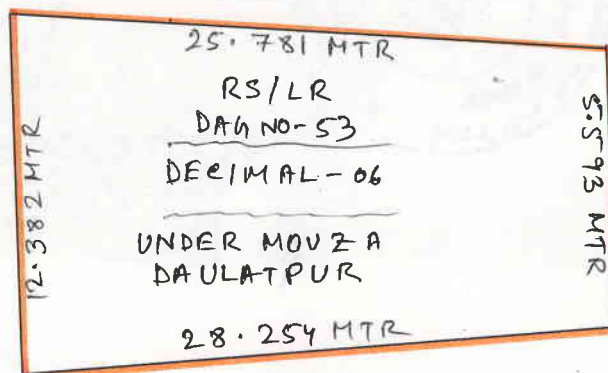 25.781 MTR
RS/LR
DAG NO-53
DECIMAL-06
UNDER MOUZA
DAULATPUR
12.382 MTR
5.593 MTR
28.254 MTR